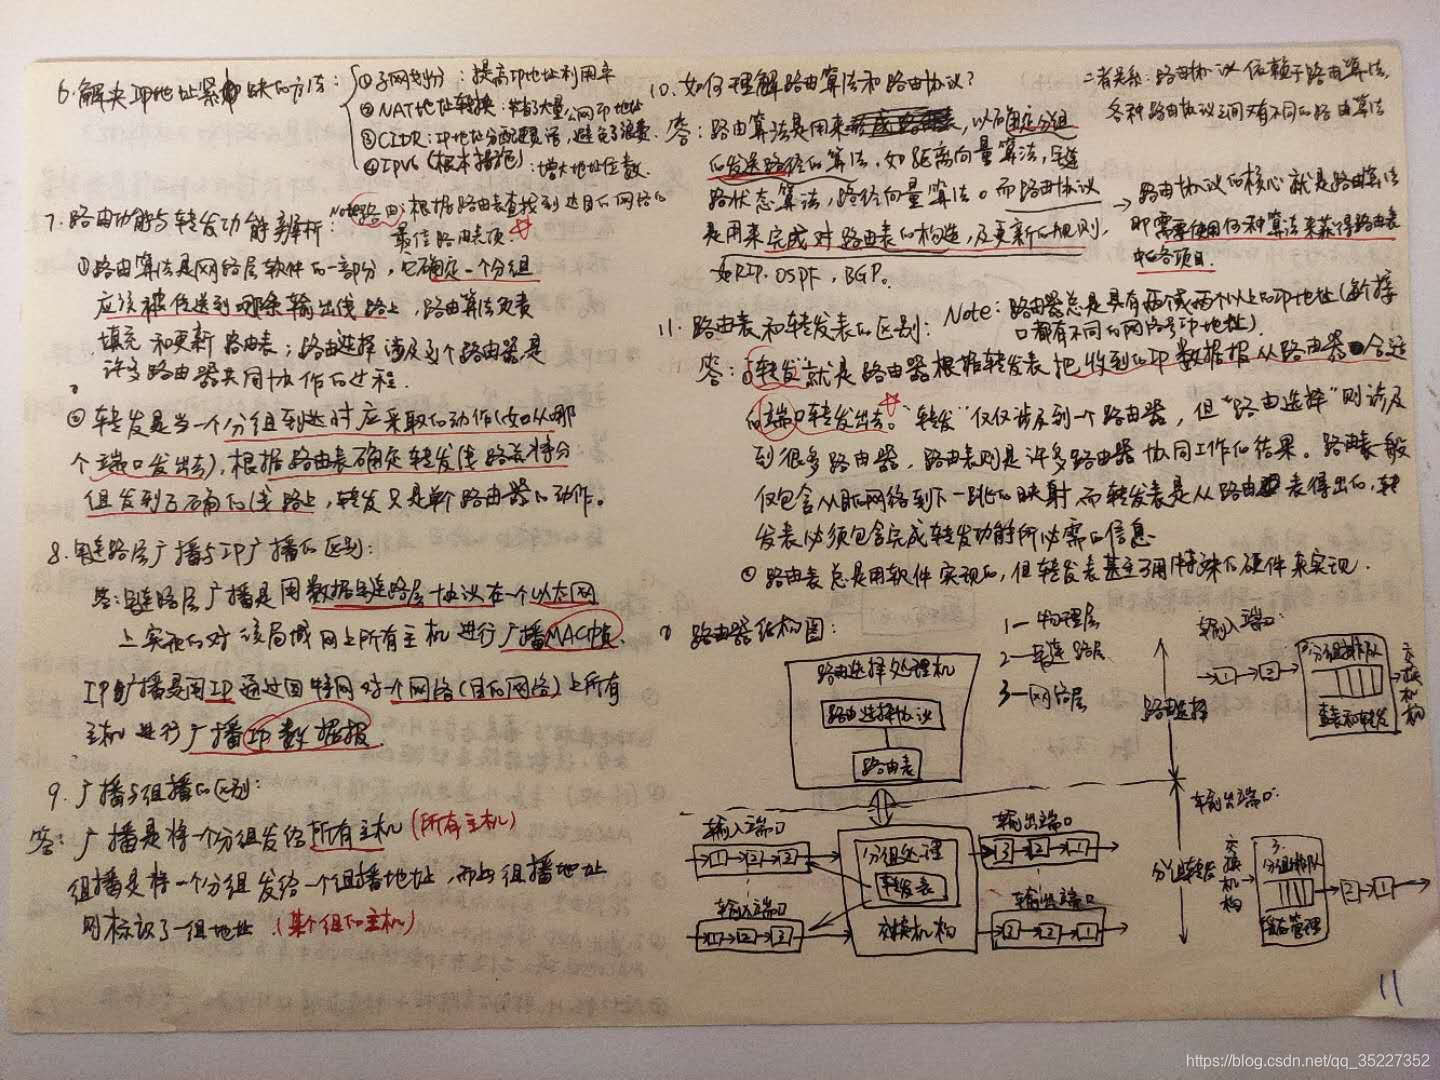 6. 解决IP地址紧缺的方法:
①子网划分:提高IP地址利用率
②NAT地址转换:节省了大量公网IP地址
③CIDR:IP地址分配更灵活,避免了浪费.
④IPV6(根本措施):增大地址位数.
7. 路由功能与转发功能辨析:
Note:路由:根据路由表查找到达目的网络的
最佳路由表项.
①路由算法是网络层软件的一部分,它确定一个分组
应该被传送到哪条输出线路上,路由算法负责
填充和更新路由表;路由选择涉及到个路由器是
许多路由器共同协作的过程.
②转发是当一个分组到达时应采取的动作(如从哪
个端口发出去),根据路由表确定转发线路并将分
组发到正确的线路上,转发只是单个路由器的动作。
8. 链路层广播与IP广播的区别:
答:链路层广播是用数据链路层协议在一个以太网
上实现的对该局域网上所有主机进行广播MAC帧.
IP广播是用IP通过因特网对一个网络(目的网络)上所有
主机进行广播IP数据报.
9. 广播与组播的区别:
答:广播是将一个分组发给所有主机(所有主机)
组播是将一个分组发给一个组播地址,而每组播地址
则标识了一组地址.(某个组的主机)
10. 如何理解路由算法和路由协议?
二者关系:路由协议依赖于路由算法,
各种路由协议之间又有不同的路由算法
答:路由算法是用来,以确定分组
的发送路径的算法.如距离向量算法,链
路状态算法,路径向量算法。而路由协议
是用来完成对路由表的构造,及更新的规则,
如RIP、OSPF、BGP。
→路由协议的核心就是路由算法
即需要使用何种算法来获得路由表
中的各项目.
11. 路由表和转发表的区别:
Note:路由器总是具有两个或两个以上的IP地址(每个接
口都有不同的网络号IP地址).
答:①"转发"就是路由器根据转发表把收到的IP数据报从路由器合适
的端口转发出去。"转发"仅仅涉及到一个路由器,但"路由选择"则涉及
到很多路由器,路由表则是许多路由器协同工作的结果。路由表一般
仅包含从目的网络到下一跳的映射,而转发表是从路由表得出的,转
发表必须包含完成转发功能所必需的信息.
②路由表总是用软件实现的,但转发表甚至可用特殊的硬件来实现.
路由器结构图:
1—物理层
2—链路层
3—网络层
路由选择处理机
路由选择协议
路由表
输入端口
1 2 3
分组处理
转发表
交换机构
输出端口
3 2 1
输入端口
1 2 3
输出端口
3 2 1
路由选择
分组转发
输入端口:
1 2
3 分组排队
查表和转发
交换机构
输出端口:
交换机构
3.
分组排队
缓存管理
2 1
11
https://blog.csdn.net/qq_35227352